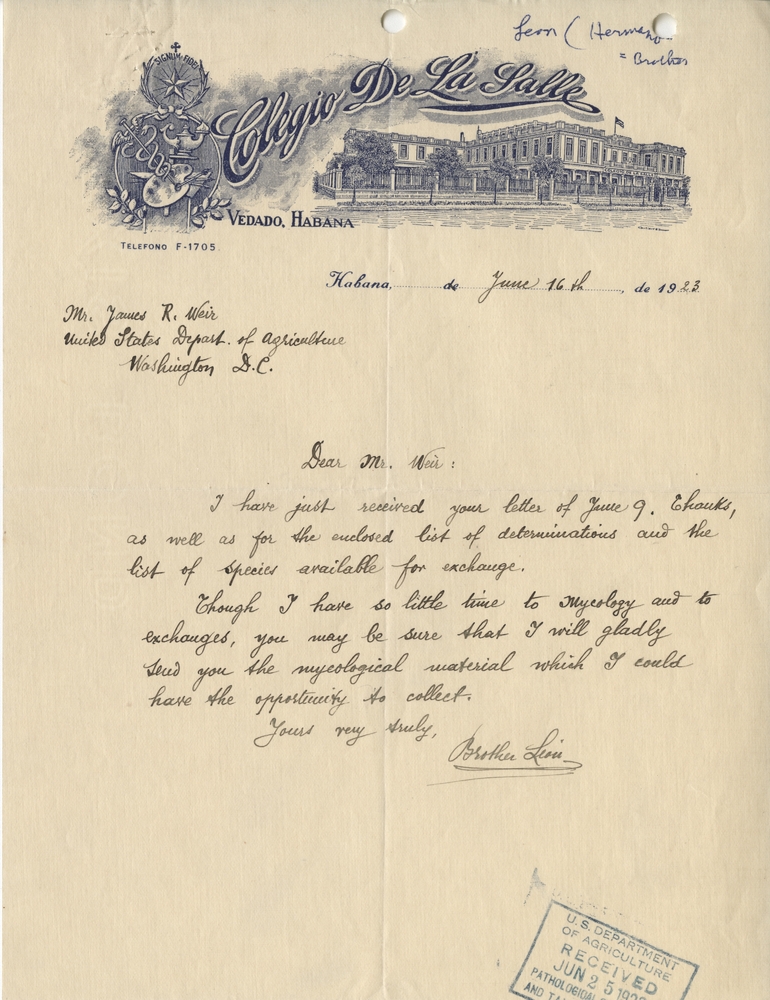 Leon (Hermano
= Brother
SIGNUM FIDEI
Colegio De La Salle
VEDADO, HABANA
TELEFONO F-1705.
Habana, de June 16th, de 1923
Mr. James R. Weir
United States Depart. of Agriculture
Washington D.C.
Dear Mr. Weir:
I have just received your letter of June 9. Thanks,
as well as for the enclosed list of determinations and the
list of species available for exchange.
Though I have so little time to Mycology and to
exchanges, you may be sure that I will gladly
send you the mycological material which I could
have the opportunity to collect.
Yours very truly,
Brother León
U.S. DEPARTMENT
OF AGRICULTURE
RECEIVED
JUN 25 192
PATHOLOGICAL
AND